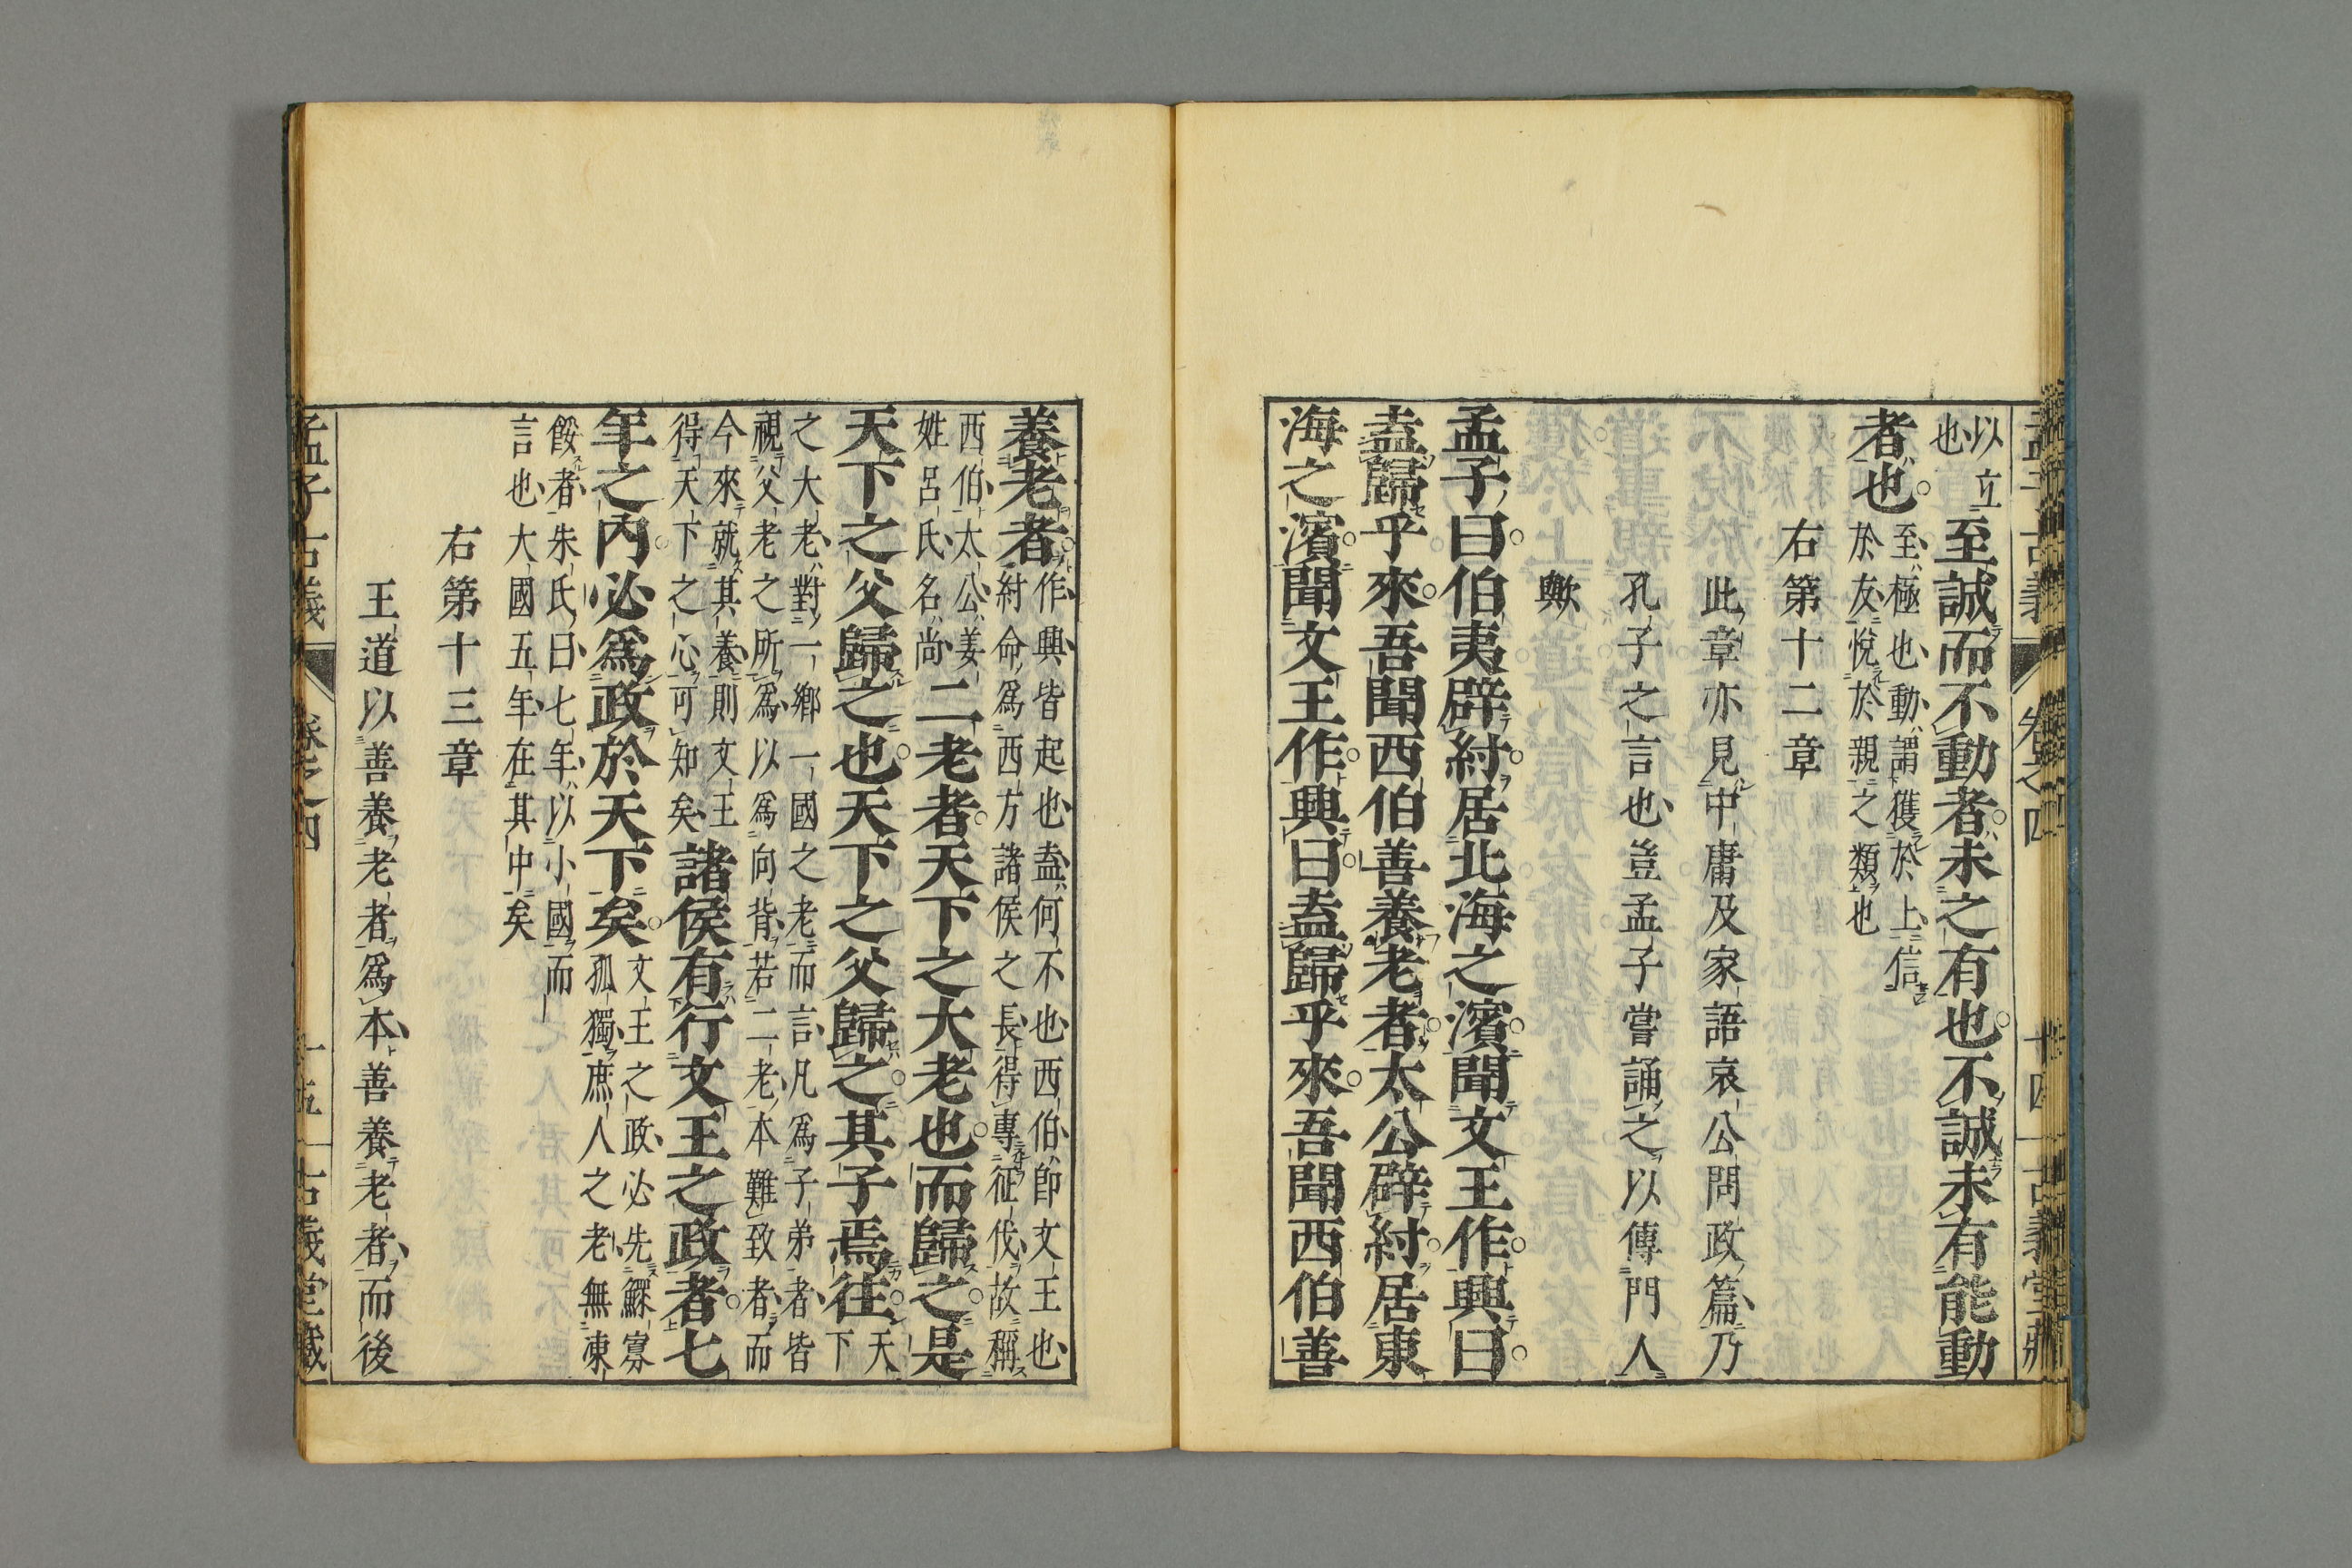 以立
也
至誠而不動者未之有也不誠未有能動
者也
至極也動謂獲於上信
於友悅於親之類也
右第十二章
此章亦見中庸及家語哀公問政篇乃
孔子之言也豈孟子嘗誦之以傳門人
歟
孟子曰伯夷辟紂居北海之濱聞文王作興曰
盍歸乎來吾聞西伯善養老者太公辟紂居東
海之濱聞文王作興曰盍歸乎來吾聞西伯善
養老者
作興皆起也盍何不也西伯即文王也
紂命爲西方諸侯之長得專征伐故稱
西伯太公姜
姓呂氏名尚
二老者天下之大老也而歸之是
天下之父歸之也天下之父歸之其子焉往
天
下
之大老對一鄉一國之老而言凡爲子弟者皆
視父老之所爲以爲向背若二老本難致者而
今來就其養則文王
得天下之心可知矣
諸侯有行文王之政者七
年之內必爲政於天下矣
文王之政必先鰥寡
孤獨庶人之老無凍
餒者朱氏曰七年以小國而
言也大國五年在其中矣
右第十三章
王道以善養老者爲本善養老者而後
孟子古義 卷之四 古義堂藏